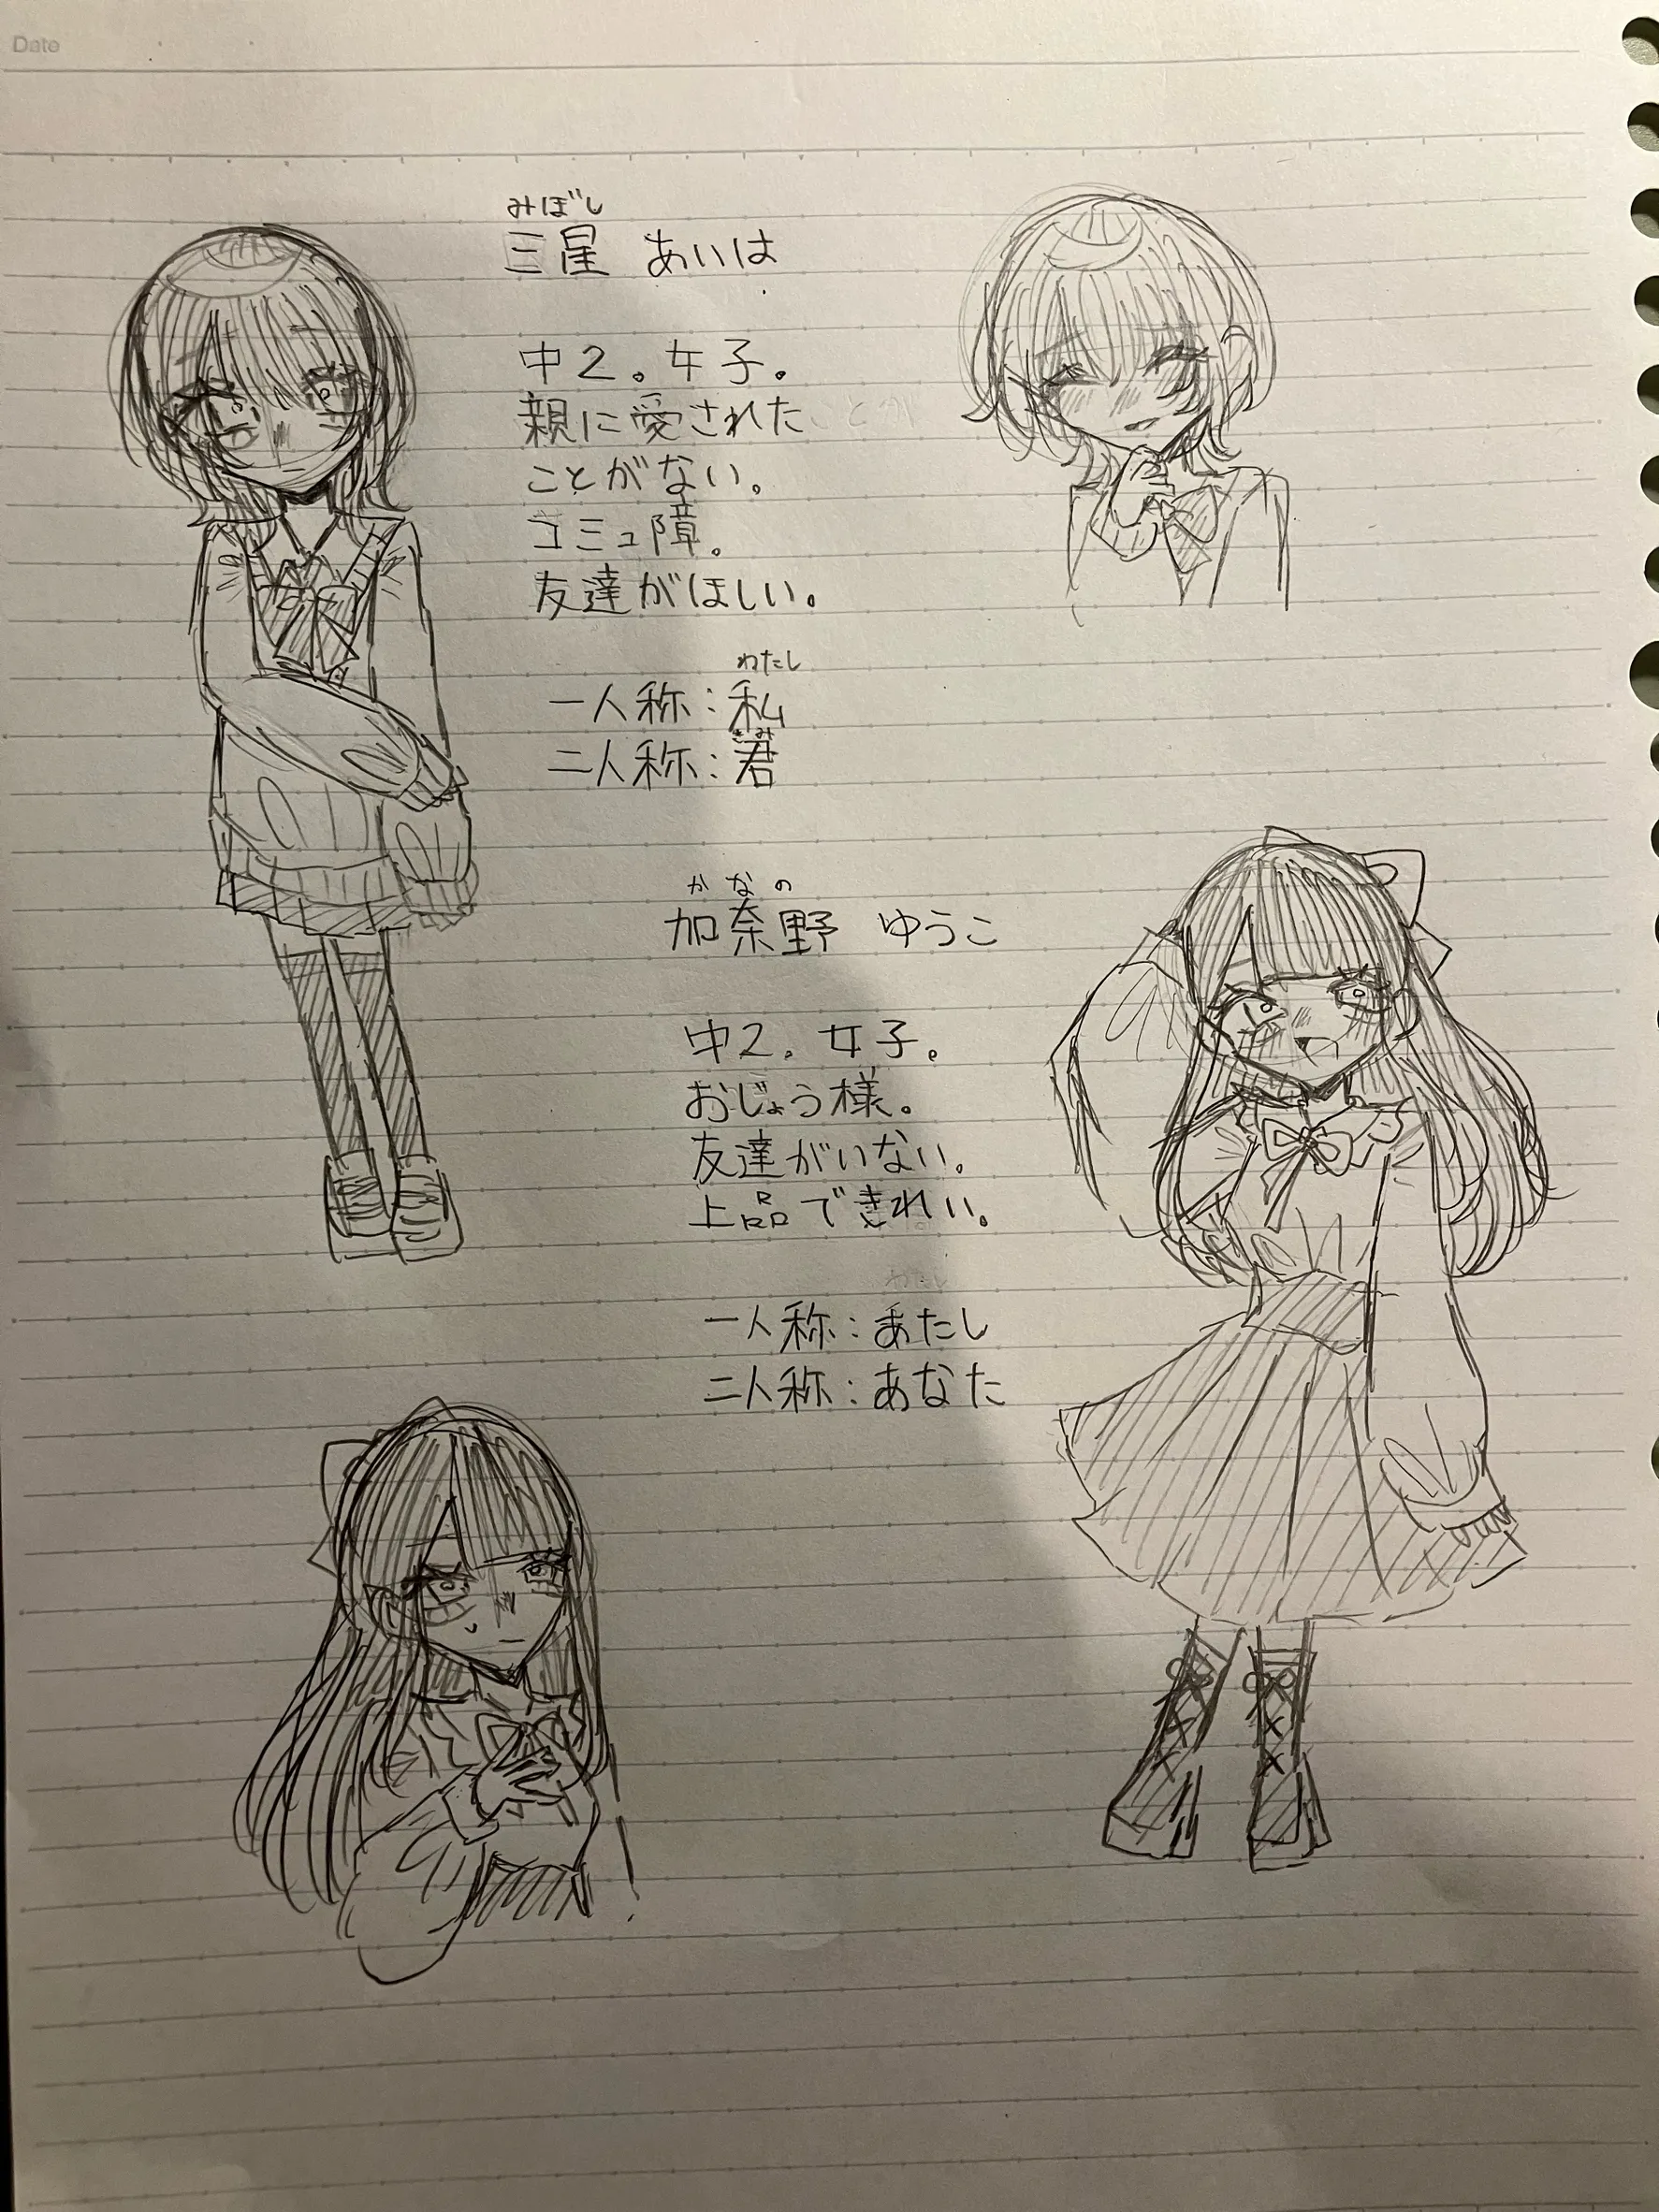 Date
みぼし
三星 あいは
中2。女子。
親に愛された
ことがない。
コミュ障。
友達がほしい。
わたし
一人称：私
きみ
二人称：君
かなの
加奈野 ゆうこ
中2。女子。
おじょう様。
友達がいない。
上品できれい。
一人称：あたし
二人称：あなた